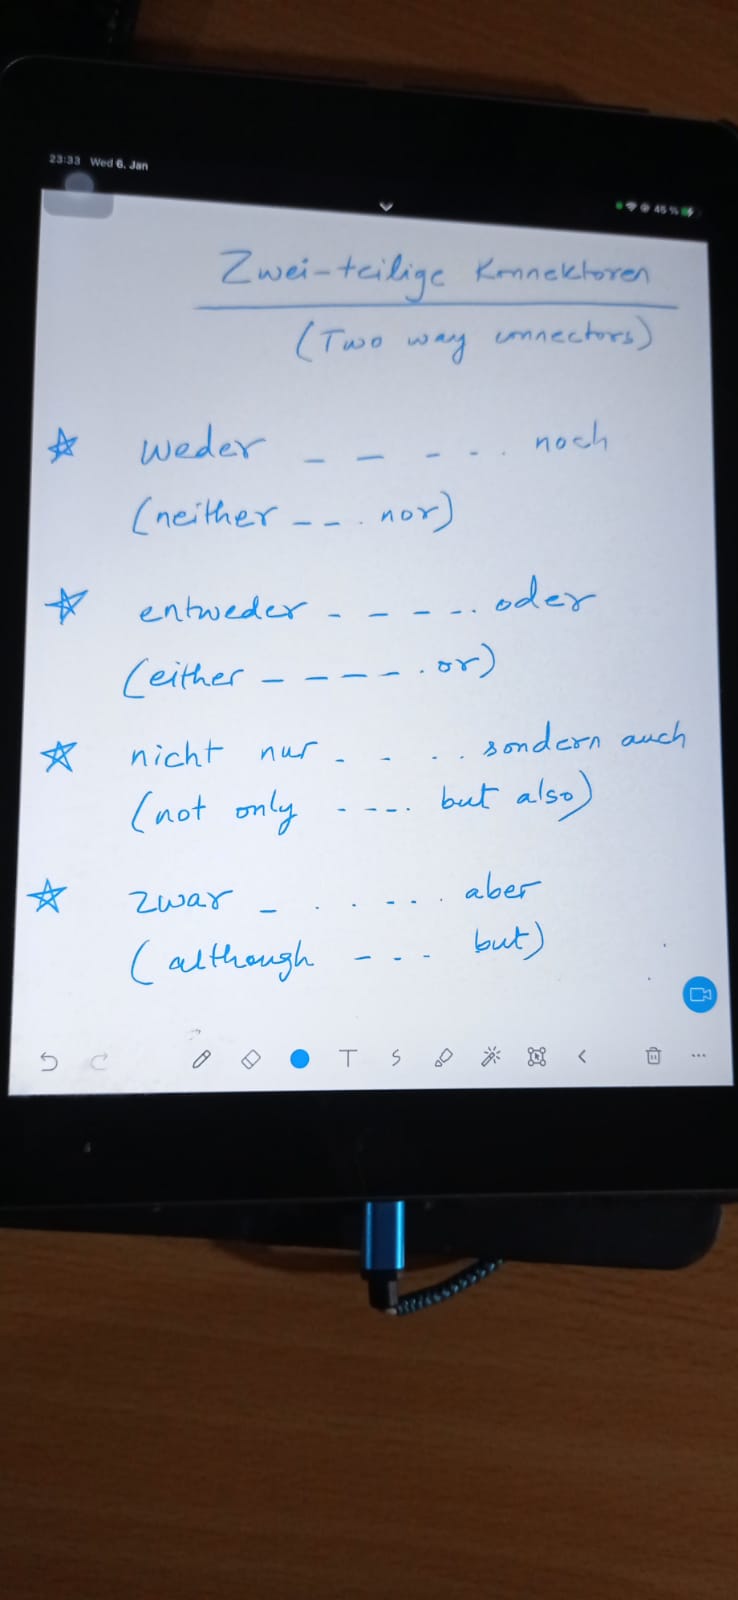 23:33 Wed 6. Jan
45 %
Zwei-teilige Konnektoren
(Two way connectors)
weder _ _ _ . . noch
(neither _ _ . nor)
entweder - - - - .. oder
(either _ _ _ _ . or)
nicht nur - - . . . sondern auch
(not only - - - . but also)
zwar _ . . - - . aber
(although - - - but)
T
S